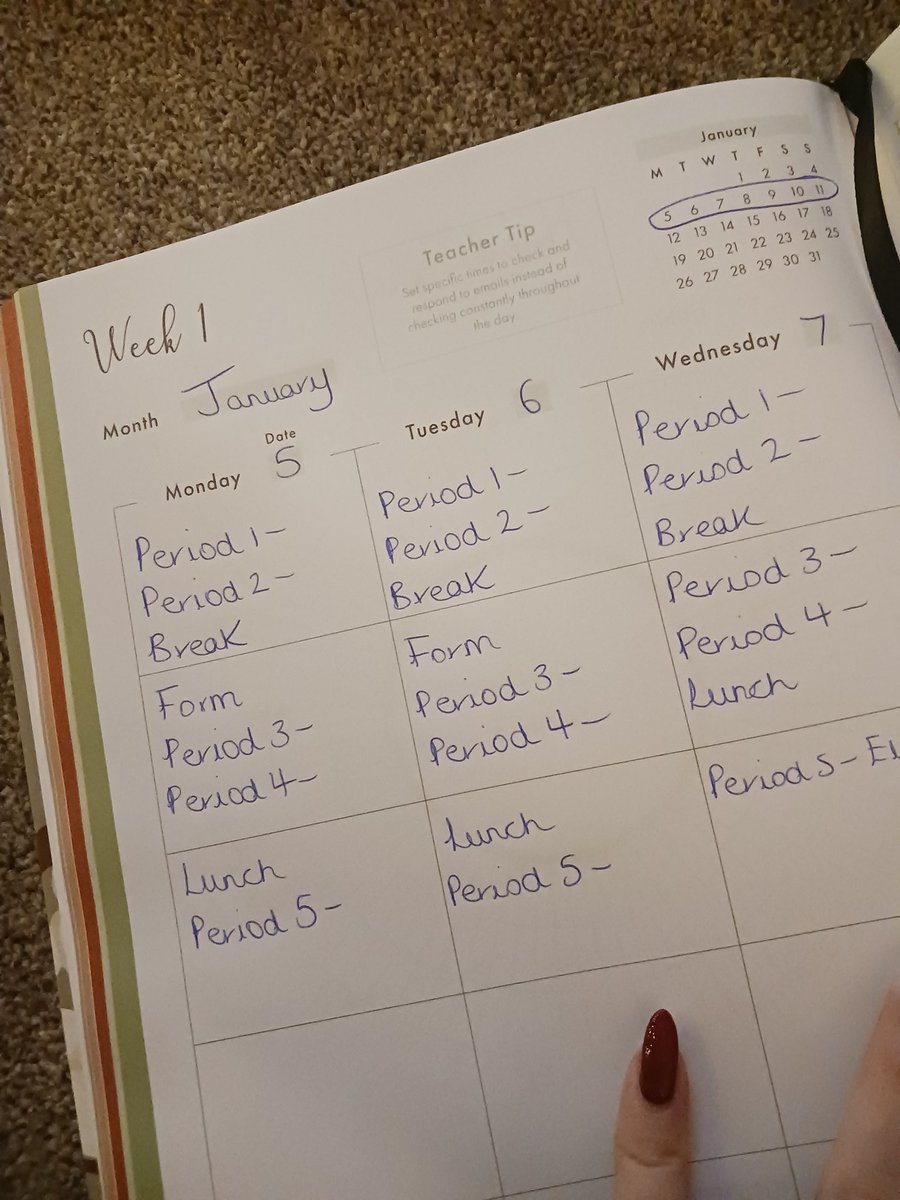 January
M T W T F S S
1 2 3 4
5 6 7 8 9 10 11
12 13 14 15 16 17 18
19 20 21 22 23 24 25
26 27 28 29 30 31
Teacher Tip
Set specific times to check and
respond to emails instead of
checking constantly throughout
the day
Week 1
Month January
Date
Monday 5
Period 1-
Period 2-
Break
Form
Period 3-
Period 4-
Lunch
Period 5-
Tuesday 6
Period 1-
Period 2-
Break
Form
Period 3-
Period 4-
Lunch
Period 5-
Wednesday 7
Period 1-
Period 2-
Break
Period 3-
Period 4-
Lunch
Period 5-